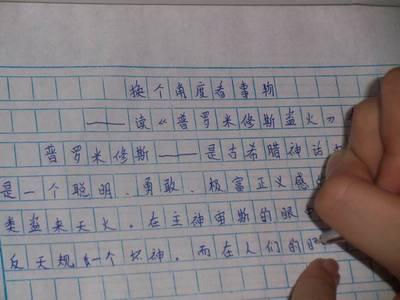 换个角度看事物
——读《普罗米修斯盗火》
普罗米修斯——是古希腊神话
是一个聪明、勇敢、极富正义感
类盗来天火。在主神宙斯的眼
反天规的一个坏神。而在人们的眼